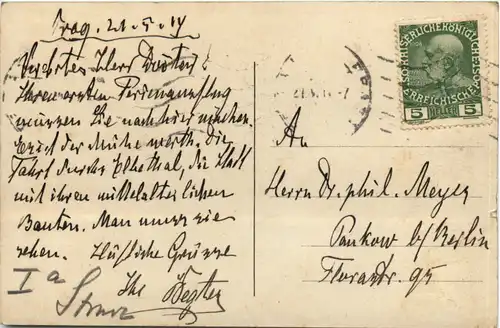 Prag. 21.5.14
Verehrter Herr Doctor!
Ihren ersten Ferienausflug
müssen Sie nach hier machen.
Es ist der Mühe werth. Die
Fahrt durchs Elbethal, die Stadt
mit ihren mittelalterlichen
Bauten. Man muss sie
sehen. Höfliche Grüsse
Ihr
Ia
KAISERLICHEKÖNIGLICHE
ÖSTERREICHISCHE
5 HELLER 5
An
Herrn Dr. phil. Meyer
Pankow b/Berlin
Florastr. 95